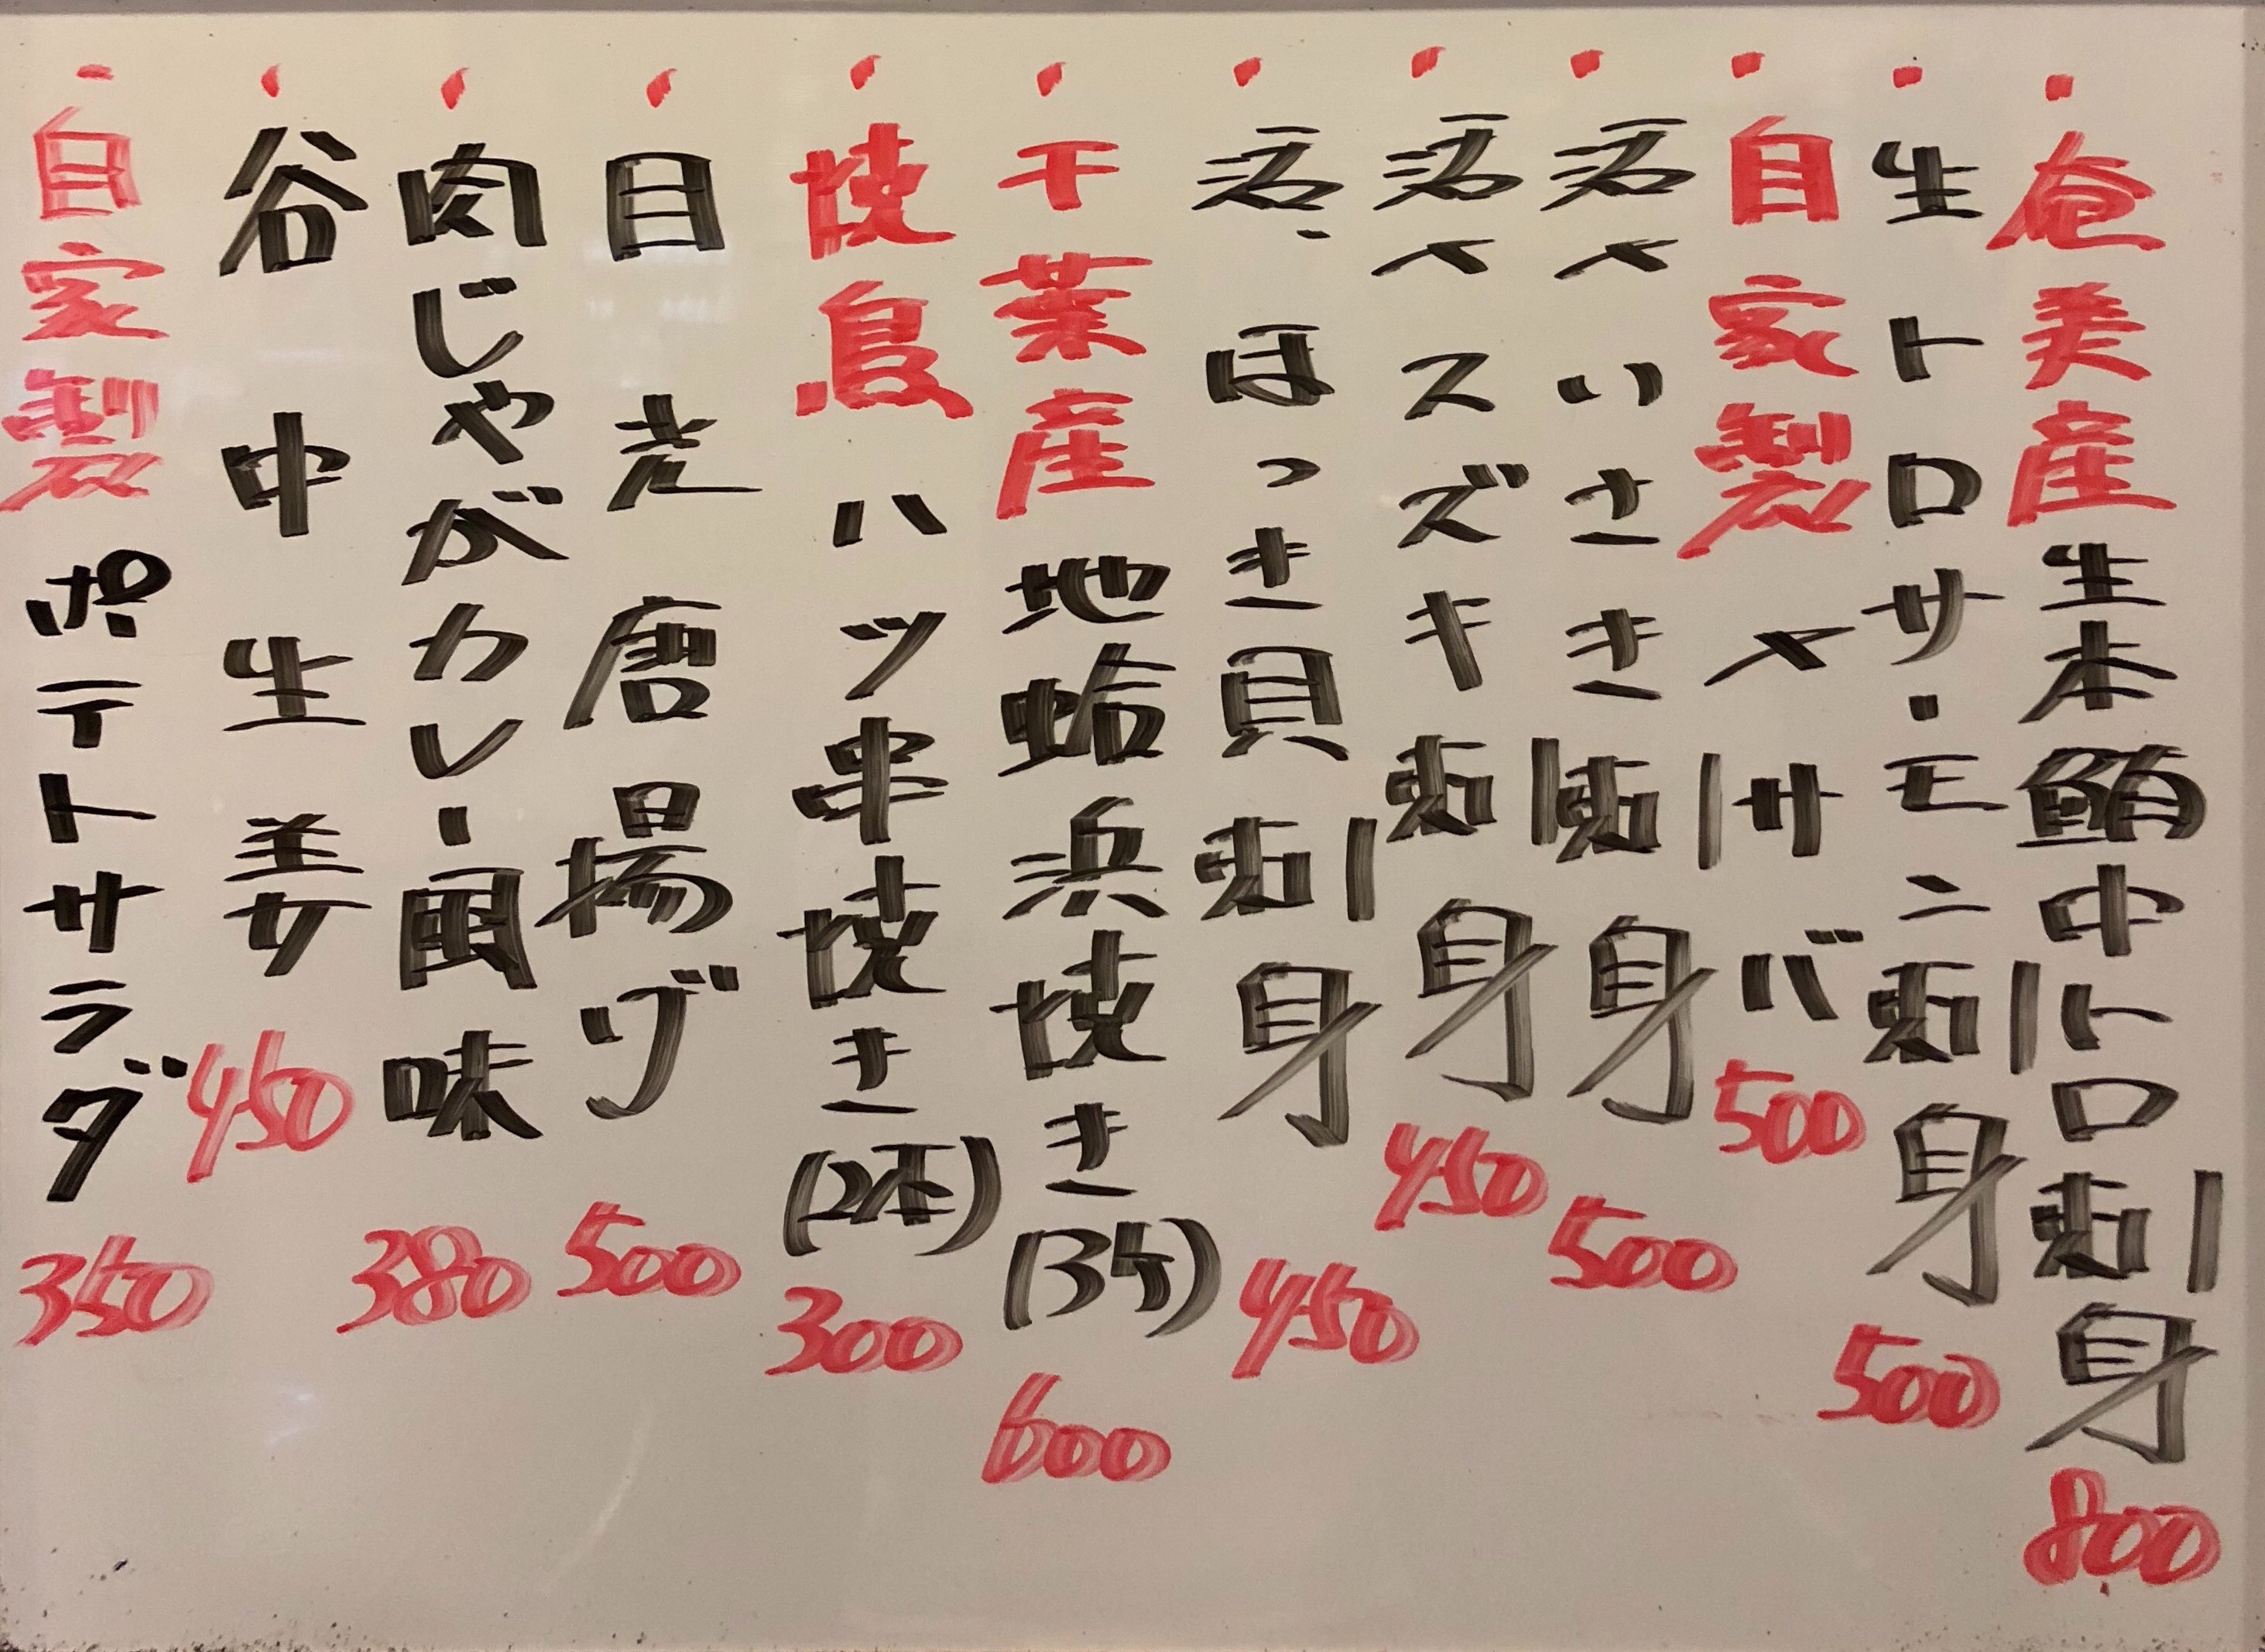 ・奄美産生本鮪中トロ刺身 800
・生トロサーモン刺身 500
・自家製〆サバ 500
・活〆いさき刺身 500
・活〆スズキ刺身 450
・活、ほっき貝刺身 450
・千葉産地蛤浜焼き(3ケ) 600
・焼鳥ハツ串焼き(2本) 300
・目光唐揚げ 500
・肉じゃがカレー風味 380
・谷中生姜 450
・自家製ポテトサラダ 350